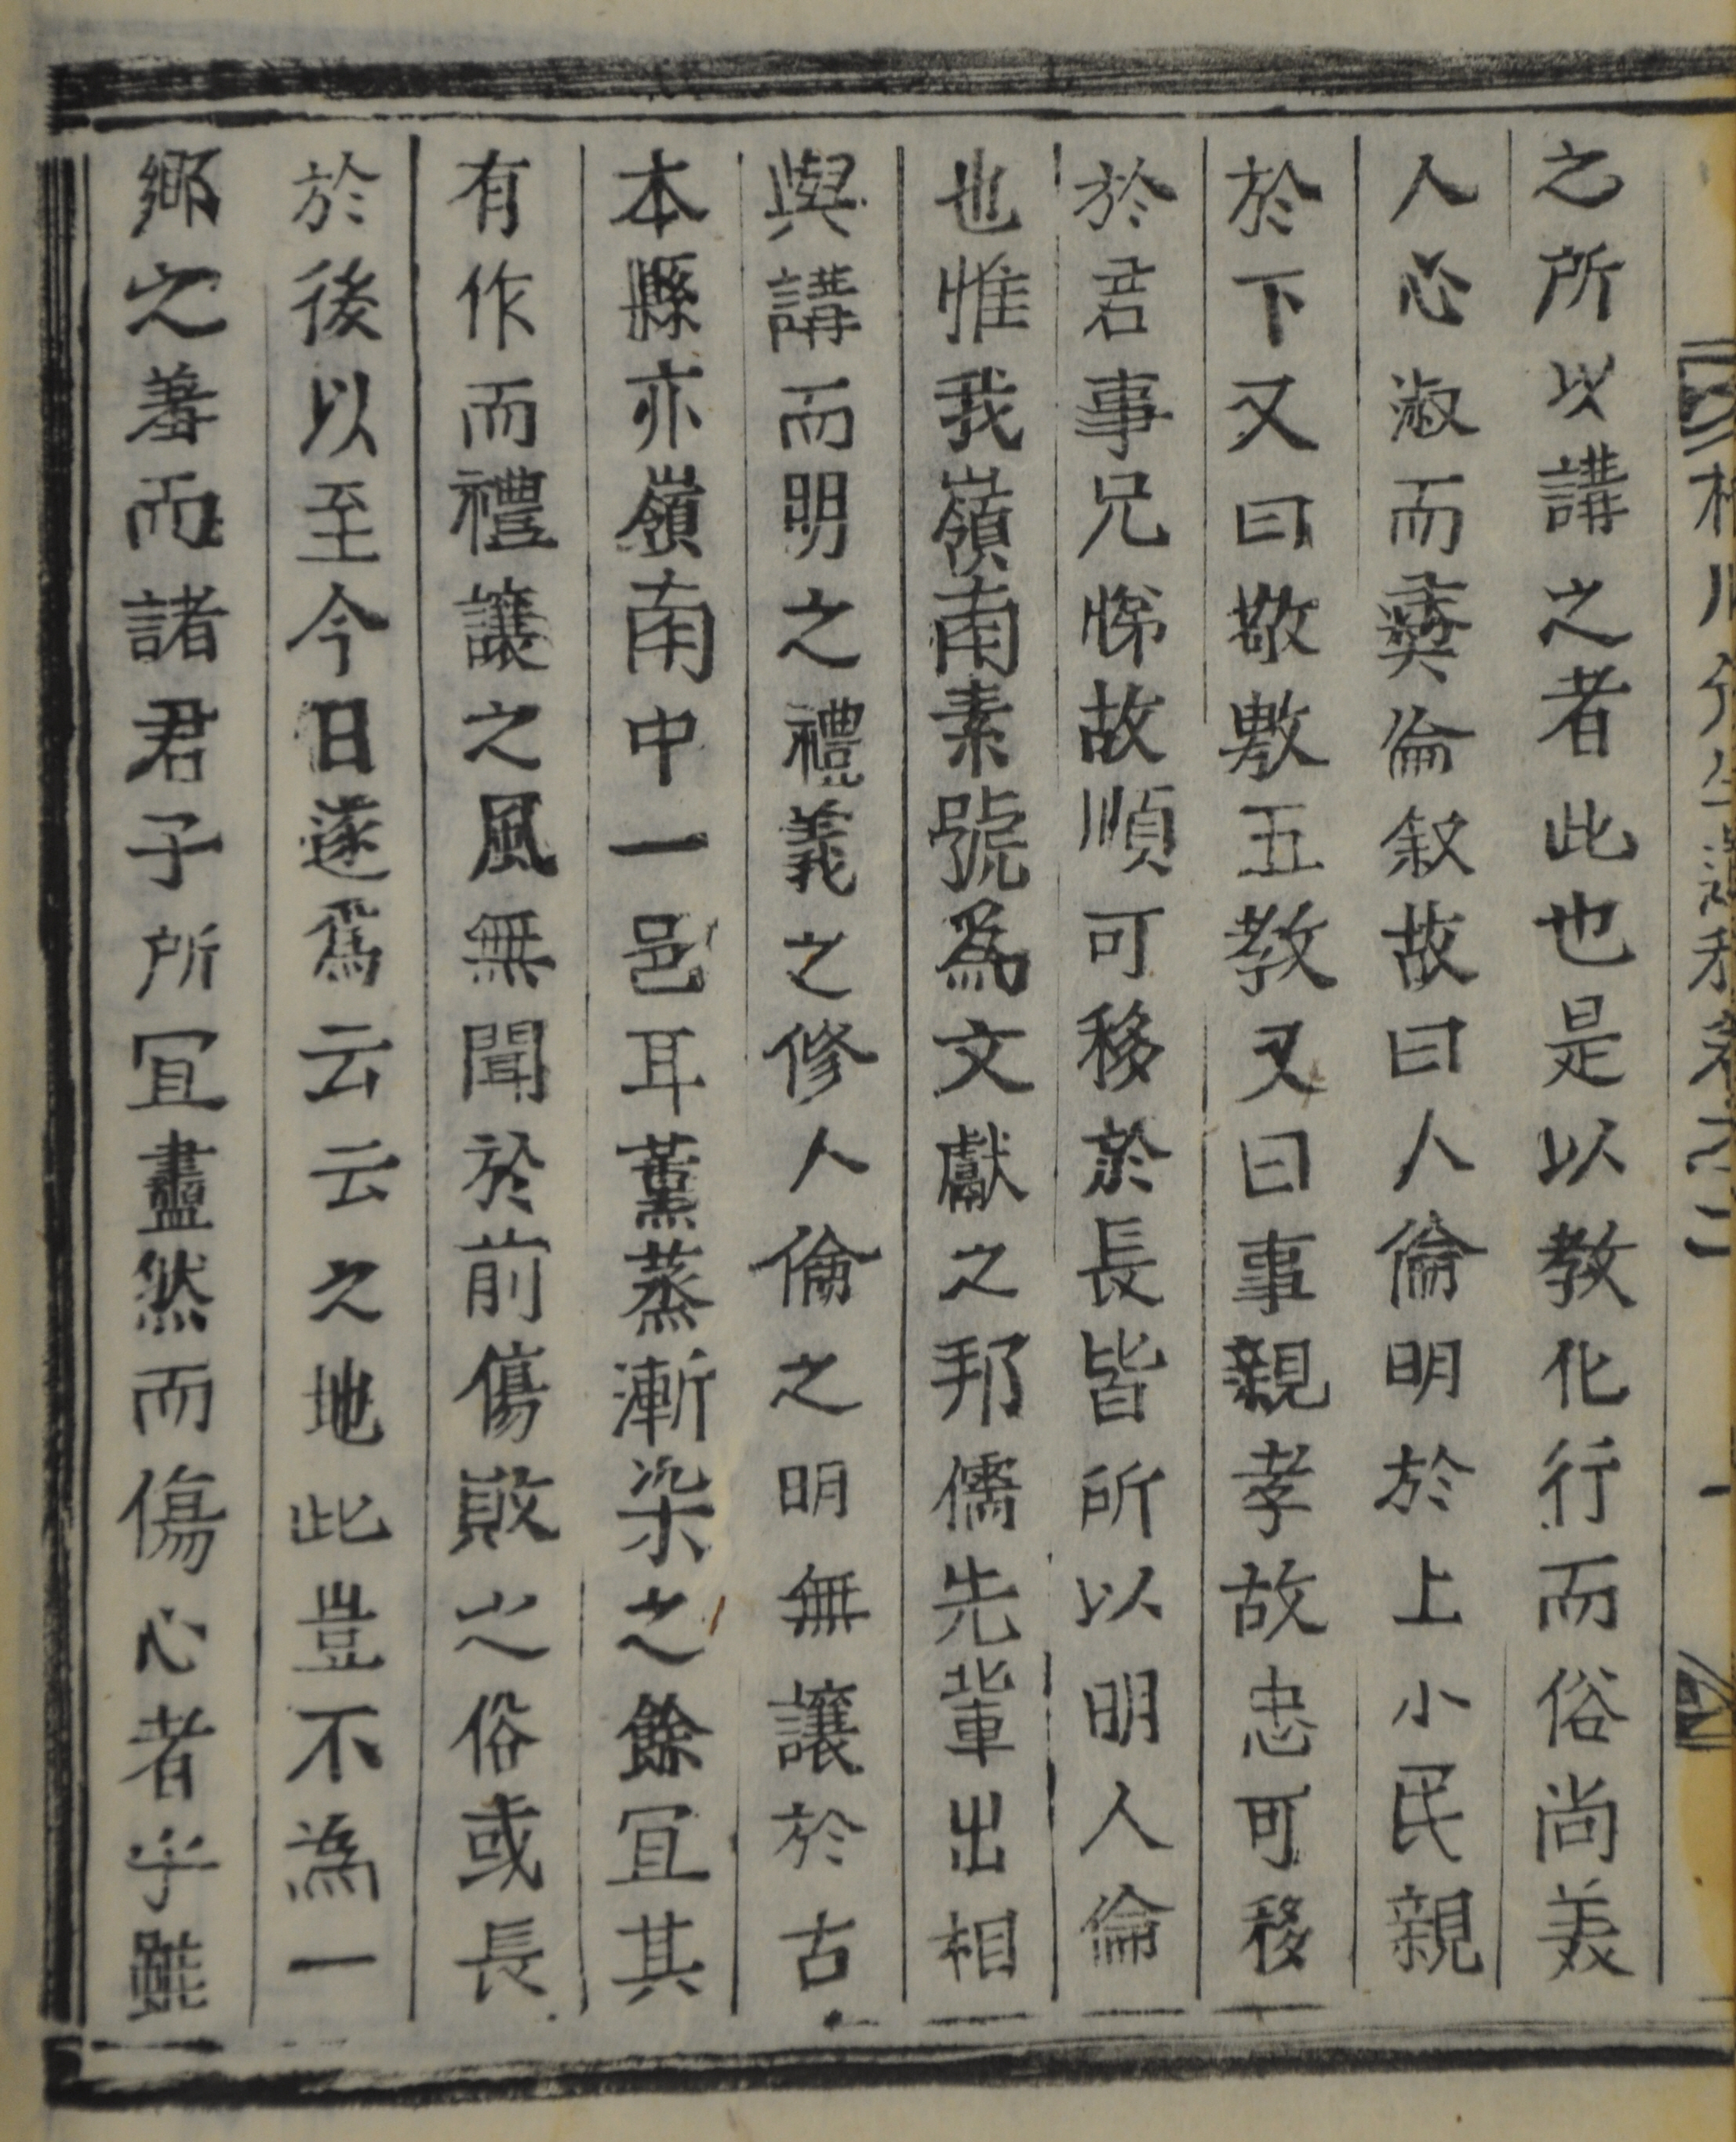 之所以講之者此也是以敎化行而俗尚美
人心淑而彛倫叙故曰人倫明於上小民親
於下又曰敬敷五敎又曰事親孝故忠可移
於君事兄悌故順可移於長皆所以明人倫
也惟我嶺南素號爲文獻之邦儒先輩出相
與講而明之禮義之修人倫之明無讓於古
本縣亦嶺南中一邑耳薰蒸漸染之餘冝其
有作而禮讓之風無聞於前傷敗之俗或長
於後以至今日遂爲云云之地此豈不為一
鄕之羞而諸君子所冝盡然而傷心者乎雖